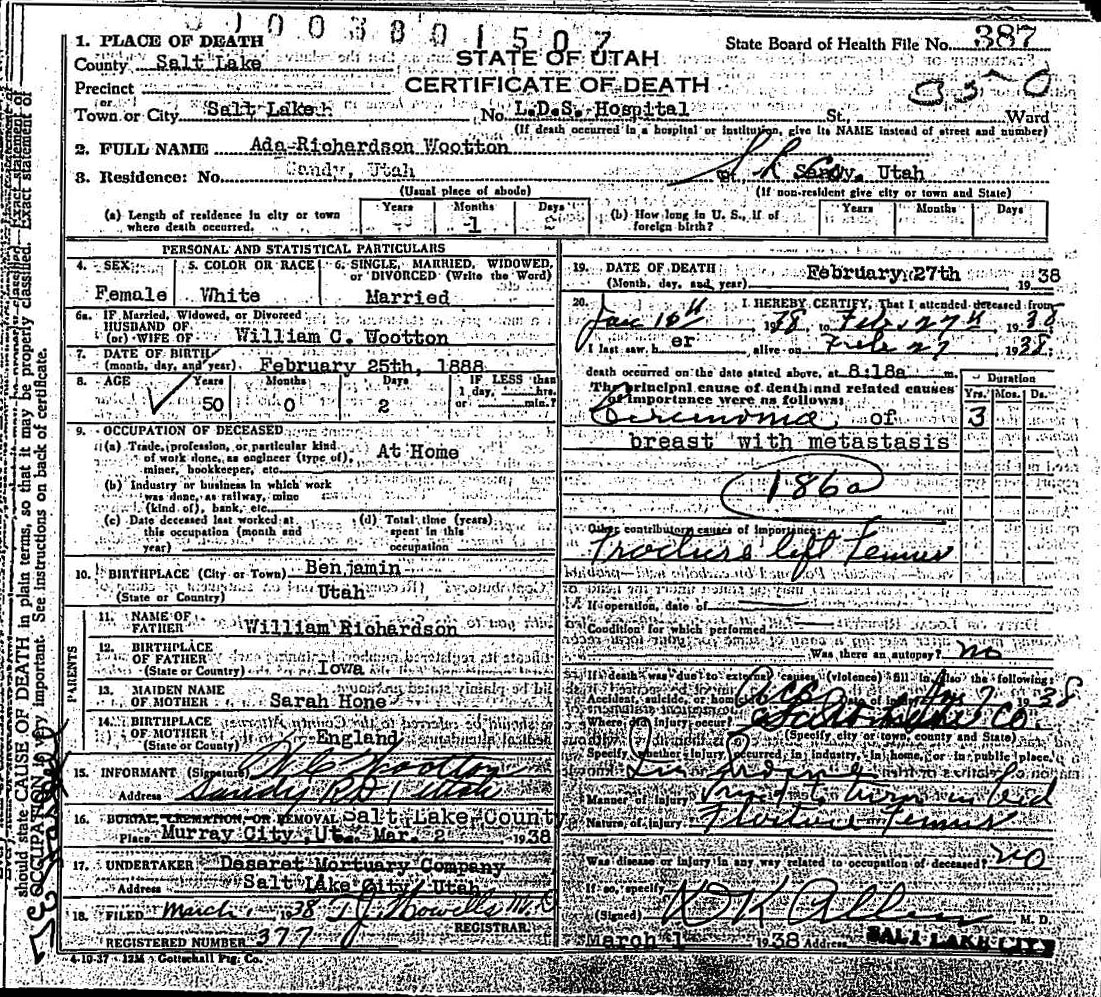 1003801507
1. PLACE OF DEATH
State Board of Health File No. 387
County Salt Lake
STATE OF UTAH
Precinct
CERTIFICATE OF DEATH
or
Town or City Salt Lake No. L.D.S. Hospital St., Ward
(If death occurred in a hospital or institution, give its NAME instead of street and number)
2. FULL NAME Ada Richardson Wootton
3. Residence: No. Sandy, Utah Sandy, Utah
(Usual place of abode) (If non-resident give city or town and State)
(a) Length of residence in city or town where death occurred. Years Months Days
- 1 -
(b) How long in U. S., if of foreign birth? Years Months Days
PERSONAL AND STATISTICAL PARTICULARS
4. SEX 5. COLOR OR RACE 6. SINGLE, MARRIED, WIDOWED, or DIVORCED (Write the Word)
Female White Married
6a. IF Married, Widowed, or Divorced
HUSBAND OF
(or) WIFE OF William C. Wootton
7. DATE OF BIRTH
(month, day, and year) February 25th, 1888
8. AGE Years Months Days IF LESS than 1 day, hrs. or min.?
50 0 2
9. OCCUPATION OF DECEASED
(a) Trade, profession, or particular kind of work done, as engineer (type of), miner, bookkeeper, etc. At Home
(b) Industry or business in which work was done, as railway, mine (kind of), bank, etc.
(c) Date deceased last worked at this occupation (month and year)
(d) Total time (years) spent in this occupation
10. BIRTHPLACE (City or Town) Benjamin
(State or Country) Utah
PARENTS
11. NAME OF FATHER William Richardson
12. BIRTHPLACE OF FATHER (State or Country) Iowa
13. MAIDEN NAME OF MOTHER Sarah Hone
14. BIRTHPLACE OF MOTHER (State or Country) England
15. INFORMANT (Signature) W C Wootton
Address Sandy R.D. 1 Utah
16. BURIAL, CREMATION, OR REMOVAL Salt Lake County
Place Murray City, Ut. Mar. 2 1938
17. UNDERTAKER Deseret Mortuary Company
Address Salt Lake City, Utah
18. FILED March 1 1938 T J Howells M.D.
REGISTRAR.
REGISTERED NUMBER 377
4-10-37 12M Gottschall Ptg. Co.
19. DATE OF DEATH
(Month, day, and year) February 27th 1938
20. I HEREBY CERTIFY, That I attended deceased from
Jan 10th 1938 to Feb 27th 1938
I last saw her alive on Feb 27, 1938.
death occurred on the date stated above, at 8:18a m.
The principal cause of death and related causes of importance were as follows:
Duration
Yrs. Mos. Ds.
of 3
breast with metastasis
186a
Other contributory causes of importance
Fracture left Femur
If operation, date of
Condition for which performed
Was there an autopsy? no
If death was due to external causes (violence) fill in also the following:
Accident, suicide, or homicide Acc Date of injury Jan 7 1938
Where did injury occur? Salt Lake Co.
(Specify city or town, county and State)
Specify whether injury occurred in industry, in home, or in public place.
In home
Manner of injury turn in bed
Nature of injury Fracture Femur
Was disease or injury in any way related to occupation of deceased? no
If so, specify
(Signed) D K Allen M. D.
March 1 1938 Address SALT LAKE CITY
should state CAUSE OF DEATH in plain terms, so that it may be properly classified. Exact statement of
OCCUPATION is very important. See instructions on back of certificate.